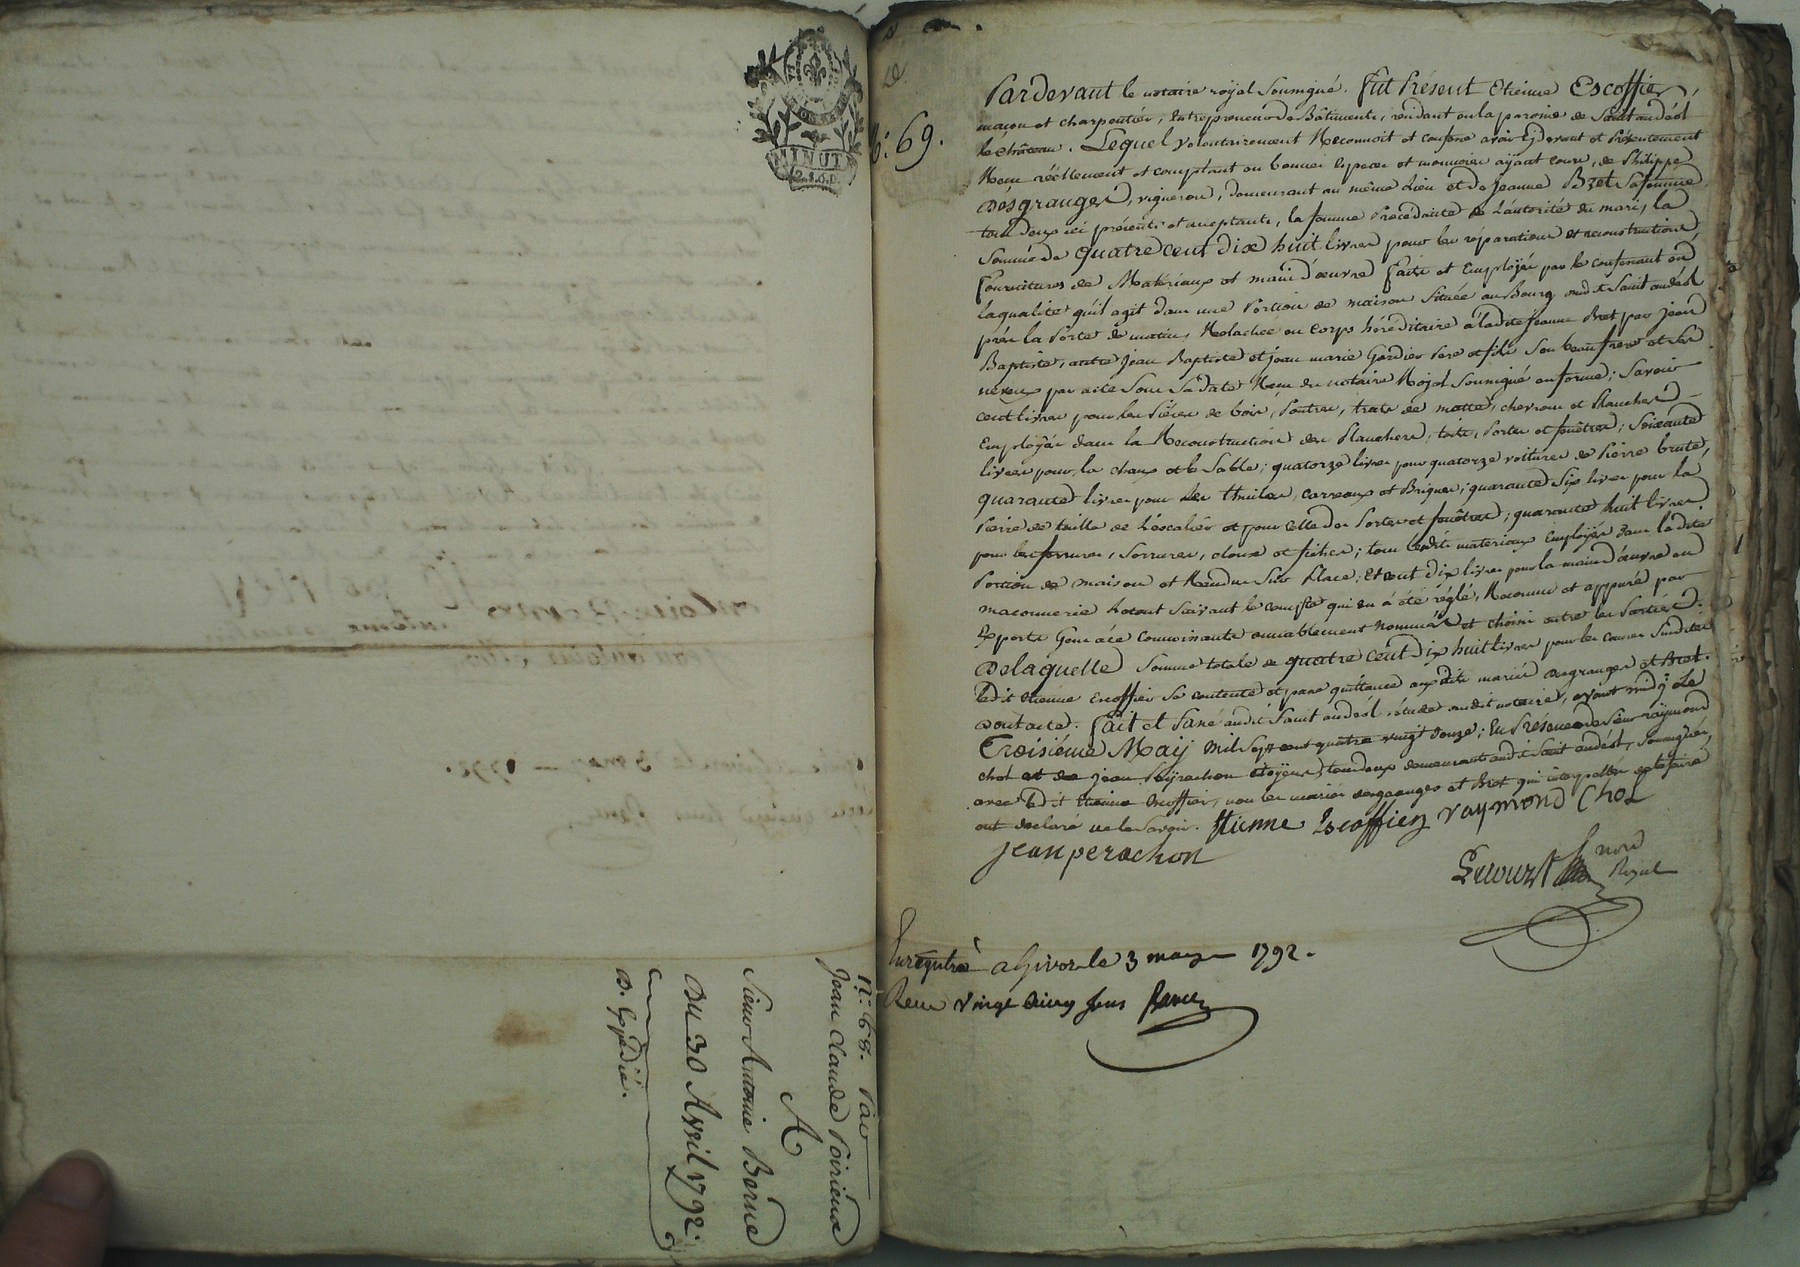 MINUT
2.s.6.d.
N.° 68. Par
Jean Claude Poirieux
A
Sieur Antoine Berne
Du 30 Avril 1792.
D. Expédié.
N.° 69.
Pardevant le notaire royal soussigné. fut Présent Etienne Escoffier,
maçon et charpentier, Entrepreneur de Bâtiments, résidant en la paroisse de Saint andéol
le château. Lequel volontairement Reconnoit et confesse avoir Cydevant et Présentement
Recu réellement et comptant en bonnes espèces et monnoies ayant cours, de Philippe
Desgranges, vigneron, demeurant au même Lieu et de Jeanne Bret Sa femme
tous deux ici présents et acceptants, la femme Procédante de L'autorité du mari, la
Somme de quatre cent dix huit livres pour les réparations et reconstructions,
fournitures de Matériaux et main d'œuvre faite et Employée par le confessant en
la qualité qu'il agit dans une Portion de maison Située au Bourg dudit Saint andéol
près la Porte de matin, Relachée en Corps héréditaire à ladite Jeanne Bret par jean
Baptiste, autre Jean Baptiste et jean marie Gardier Pere et fils Son beaufrère et Ses
neveux par acte Sous Sa date Recu du notaire Royal Soussigné en forme; Savoir
cent livres pour les Pièces de bois, Poutres, trats de matte, chevrons et Planches
Employés dans la Reconstruction des Planchers, toits, Portes et fenêtres; Soixante
livres pour la chaux et le Sable; quatorze livres pour quatorze voitures de Pierre brute,
quarante livres pour les thuiles, carreaux et Briques; quarante Six livres pour la
Pierre de taille de L'escalier et pour celle des Portes et fenêtres; quarante huit livres
pour les ferrures, Serrures, cloux et fiches; tous lesdits materiaux Employés dans ladite
Portion de maison et Rendus Sur Place; Et cent dix livres pour la main d'œuvre en
maçonnerie le tout Suivant le compte qui en a été réglé, Reconnu et appuré par
Experts Gens à ce Connoissants amiablement nommés et choisis entre les Parties.
De laquelle Somme totale de quatre cent dix huit livres pour les causes Susdites
Ledit Etienne Escoffier Se contente et passe quittance auxdits mariés desgranges et Bret.
Dont acte. fait et Passé audit Saint andéol, étude dudit notaire, avant midy Le
Troisième May mil Sept cent quatre vingt douze; En Présence de Sieur raymond
chol et de jean Peyrachon citoyens, tous deux demeurants audit Saint andéol, soussignés,
avec ledit Etienne Escoffier, non les mariés desgranges et Bret qui interpellés de le faire
ont declaré ne le Savoir. Etienne Escoffier raymond Chol
jean perachon
nore
Royal
Enregistré a Givors le 3 may 1792.
Recu vingt cinq sous